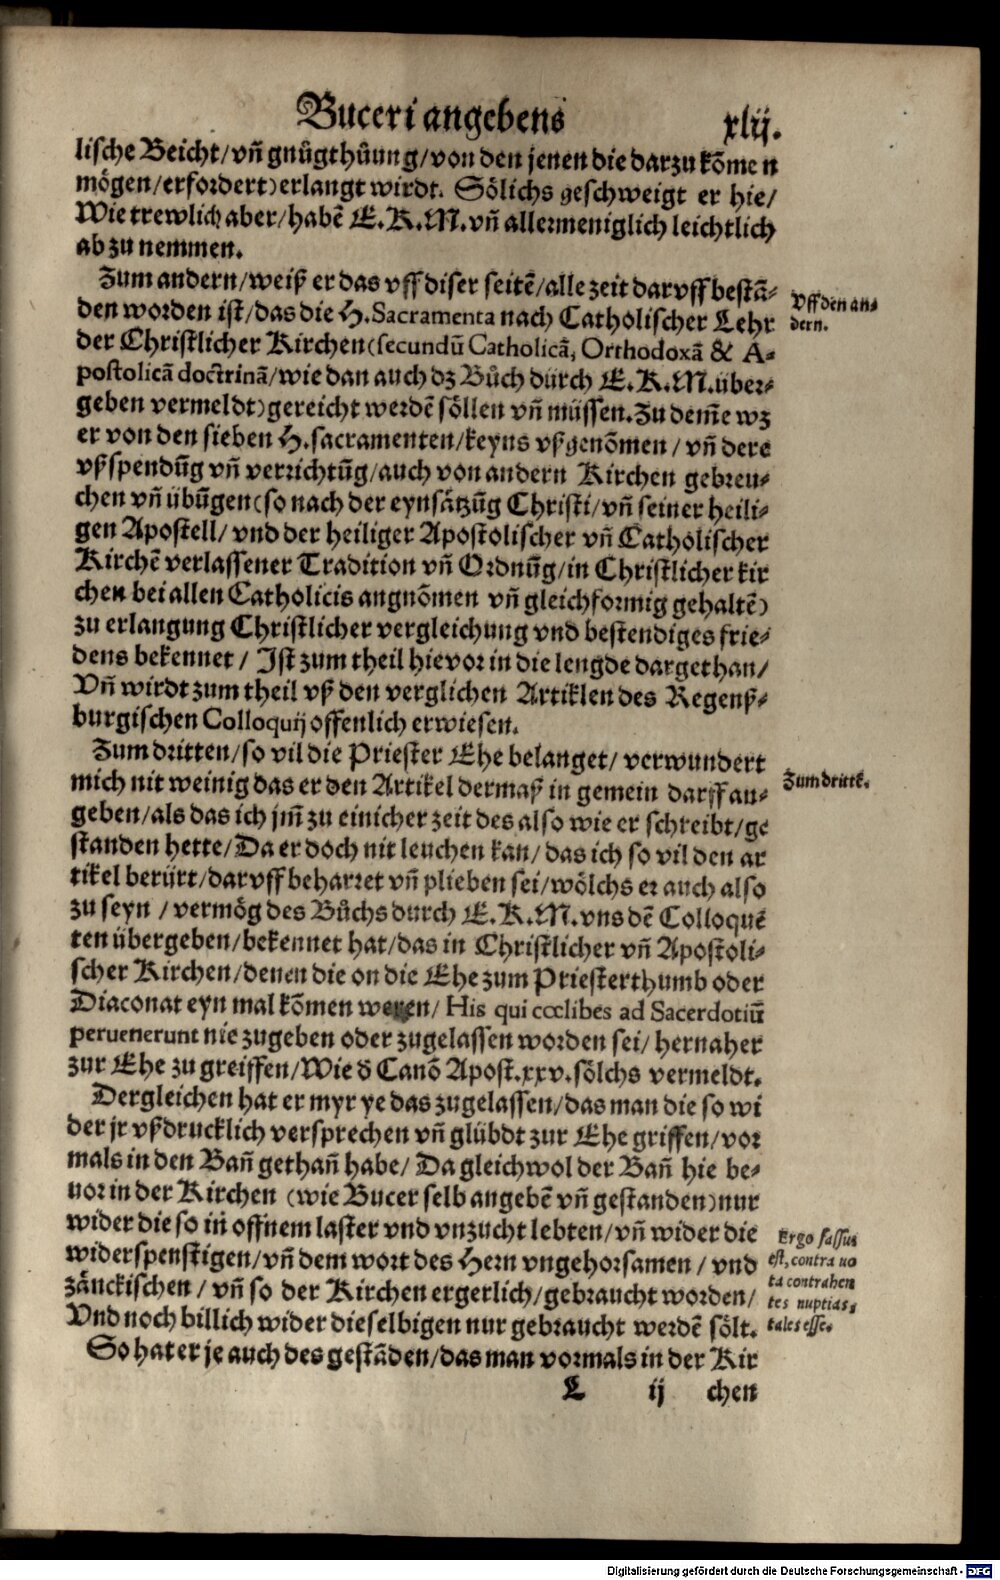 Buceri angebens
xlij.
lische Beicht/vñ gnůgthůung/von den jenen die darzu kõmen
mögen/erfordert) erlangt wirdt. Sölichs geschweigt er hie/
Wie trewlich aber/habẽ E.K.M. vñ allermeniglich leichtlich
ab zu nemmen.
Zum andern/weiß er das vff diser seitẽ/alle zeit darvff bestã-
den worden ist/das die H. Sacramenta nach Catholischer Lehr
der Christlicher Kirchen (secundũ Catholicã, Orthodoxã & A-
postolicã doctrinã/wie dan auch dz Bůch durch E.K.M. über-
geben vermeldt) gereicht werdẽ söllen vñ müssen. Zu dem̃e wz
er von den sieben H. sacramenten/keyns vßgenõmen/vñ dere
vßspendũg vñ verrichtũg/auch von andern Kirchen gebreu-
chen vñ übũgen (so nach der eynsätzũg Christi/vñ seiner heili-
gen Apostell/vnd der heiliger Apostolischer vñ Catholischer
Kirchẽ verlassener Tradition vñ Ordnũg/in Christlicher kir
chen bei allen Catholicis angnõmen vñ gleichformig gehaltẽ)
zu erlangung Christlicher vergleichung vnd bestendiges frie-
dens bekennet/Ist zum theil hievor in die lengde dargethan/
Vñ wirdt zum theil vß den verglichen Artiklen des Regenß-
burgischen Colloquij offenlich erwiesen.
Zum dritten/so vil die Priester Ehe belanget/verwundert
mich nit weinig das er den Artikel dermaß in gemein darff an-
geben/als das ich jm̃ zu einicher zeit des also wie er schreibt/ge
standen hette/Da er doch nit leuchen kan/das ich so vil den ar
tikel berürt/darvff beharret vñ plieben sei/wölchs er auch also
zu seyn/vermög des Bůchs durch E.K.M. vns dẽ Colloquẽ
ten übergeben/bekennet hat/das in Christlicher vñ Apostoli-
scher Kirchen/denen die on die Ehe zum Priesterthumb oder
Diaconat eyn mal kõmen weren/His qui cœlibes ad Sacerdotiũ
peruenerunt nie zugeben oder zugelassen worden sei/hernaher
zur Ehe zu greiffen/Wie d̃ Canõ Apost. xxv. sölchs vermeldt.
Dergleichen hat er myr ye das zugelassen/das man die so wi
der jr vßdrucklich versprechen vñ glübdt zur Ehe griffen/vor
mals in den Bañ gethañ habe/Da gleichwol der Bañ hie be-
uor in der Kirchen (wie Bucer selb angebẽ vñ gestanden) nur
wider die so in offnem laster vnd vnzucht lebten/vñ wider die
widerspenstigen/vñ dem wort des Hern vngehorsamen/vnd
zänckischen/vñ so der Kirchen ergerlich/gebraucht worden/
Vnd noch billich wider dieselbigen nur gebraucht werdẽ sölt.
So hat er je auch des gestãden/das man vormals in der Kir
L ij chen
Vff den an-
dern.
Zum drittẽ.
Ergo fassus
est, contra uo
ta contrahen
tes nuptias,
tales esse.
Digitalisierung gefördert durch die Deutsche Forschungsgemeinschaft - DFG